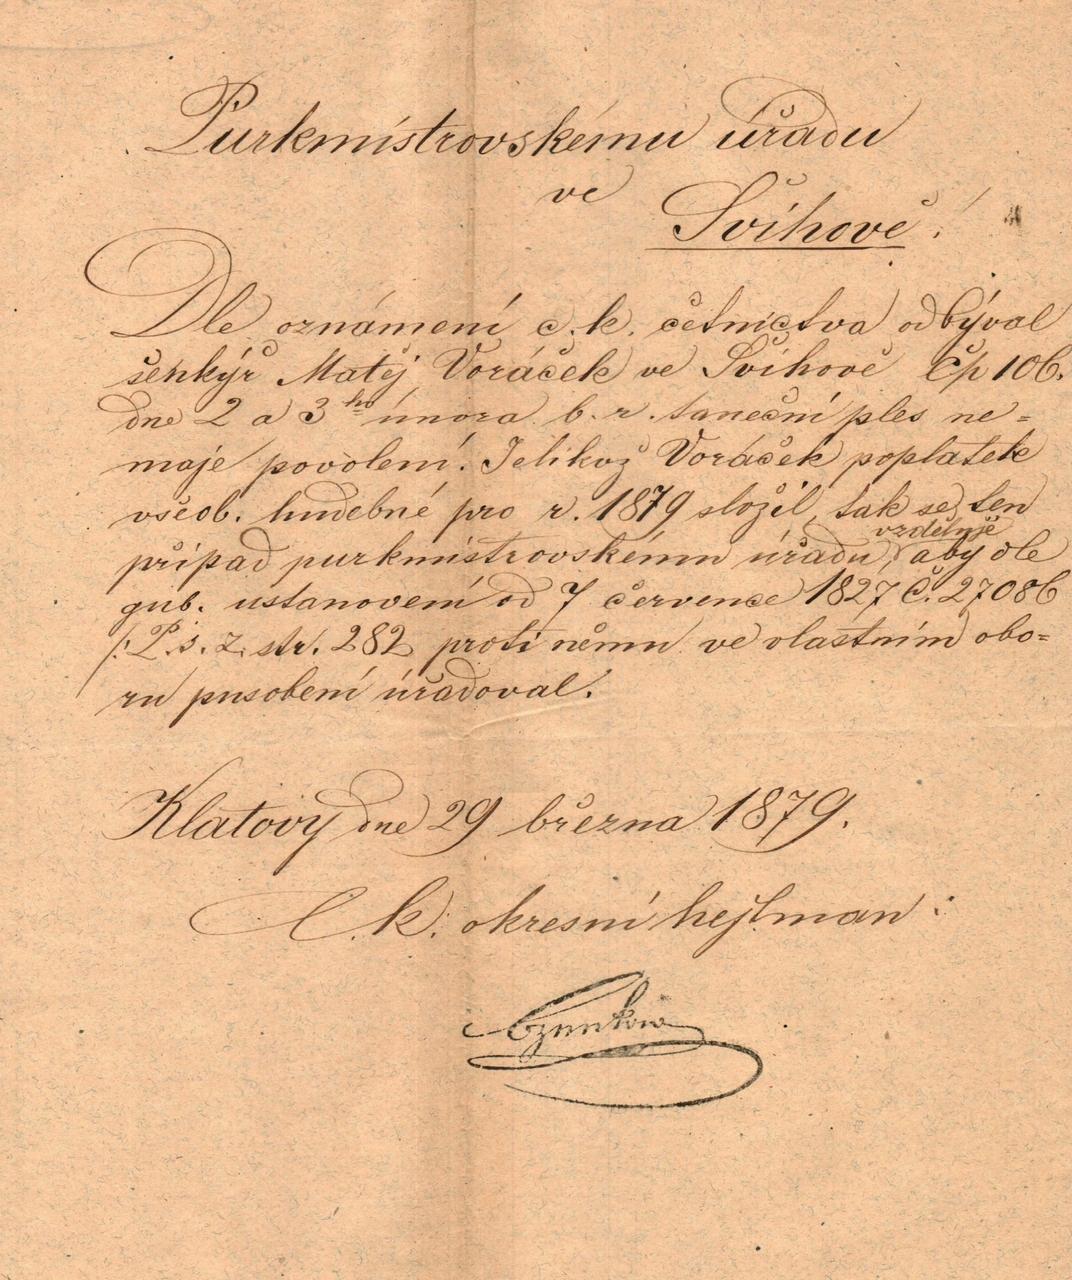 Purkmistrovskému úřadu
ve
Švihově!
Dle oznámení c. k. četnictva odbýval
šenkýř Matěj Voráček ve Švihově Čp 106.
dne 2 a 3ho února b. r. taneční ples ne=
maje povolení. Jelikož Voráček poplatek
všeob. hudebné pro r. 1879 složil, tak se ten
vzděluje
případ purkmistrovskému úřadu, aby dle
gub. ustanovení od 7 července 1827 Č. 27086
/: P. s. z. str. 282 proti němu ve vlastním obo=
ru působení úřadoval.
Klatovy dne 29 března 1879.
C. k. okresní hejtman: